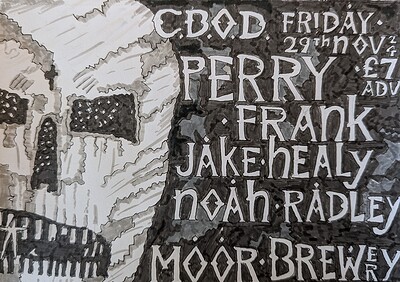 C.B.O.D. FRIDAY.
29th NOV 24
PERRY · £7
ADV
· FRANK
JAKE · HEALY
NOAH · RADLEY
MOOR · BREWERY